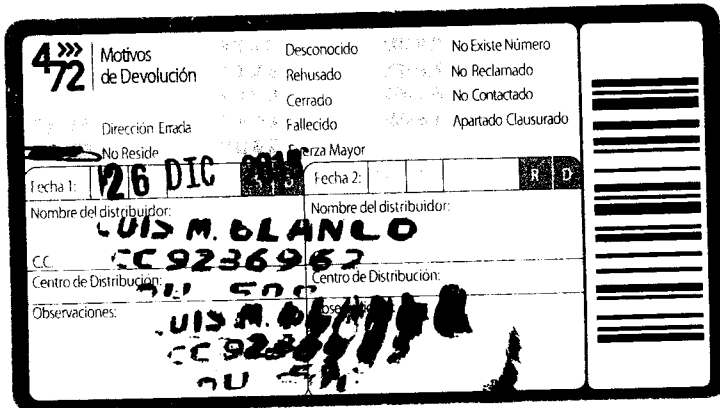 472
Motivos
de Devolución
Desconocido
Rehusado
Cerrado
Fallecido
Fuerza Mayor
No Existe Número
No Reclamado
No Contactado
Apartado Clausurado
Dirección Errada
No Reside
Fecha 1: 26 DIC
Fecha 2: R D
Nombre del distribuidor:
LUIS M. BLANCO
C.C. CC 9236962
Centro de Distribución:
Observaciones:
LUIS M.
Nombre del distribuidor:
Centro de Distribución: